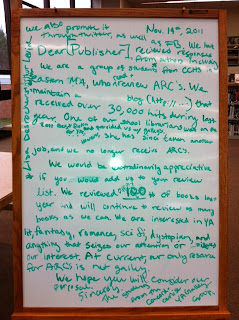 we also promote it
through twitter, as well as FB. We have
received responses
from authors
Nov. 14th, 2011
Dear [Publisher],
We are a group of students from CCHS in
Eastern MA, who read + review ARC's. We
maintain a blog (http://...) that
received over 30,000 hits during last
year. One of our school librarians was on the
2011 best and provided us w/ galleys,
she has since taken another
job, and we no longer receive ARCs.
We would be extraordinarily appreciative
if you would add us to your review
list. We reviewed 100 of books last
year and will continue to review as many
books as we can. We are interested in YA
lit, fantasy, romance, sci fi, dystopian, and
anything that seizes our attention or
interest. At current, our only resource
for ARCs is net galley.
We hope you will consider our
proposal.
Sincerely,
The
from